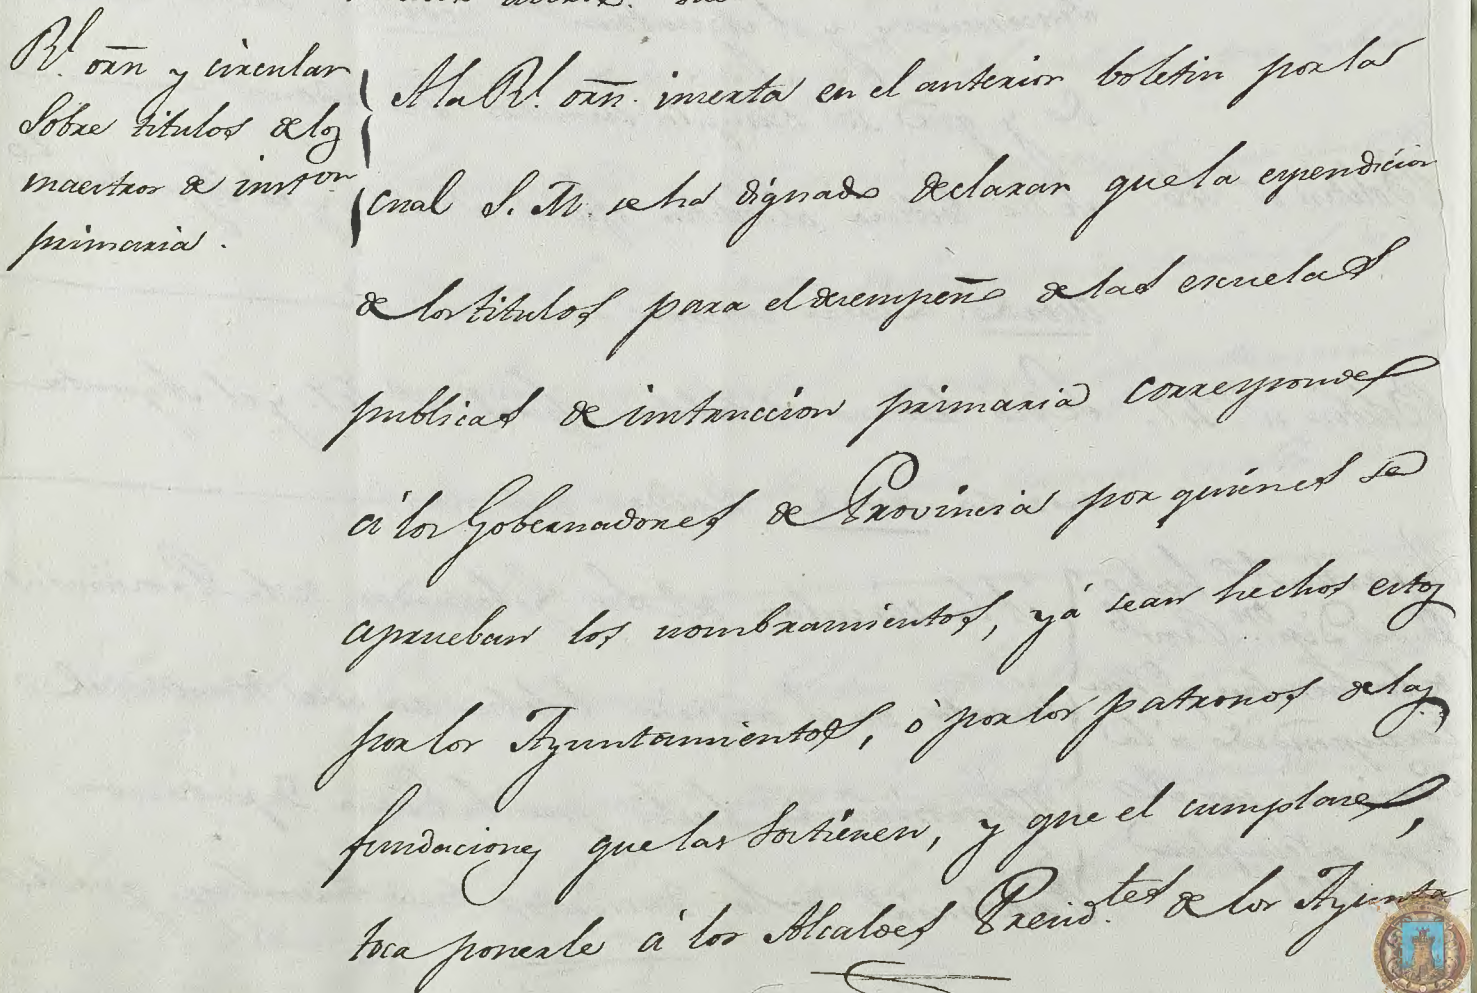 Rl. orñ y circular
Sobre titulos de los
maestros de inston
primaria.
A la Rl. orñ. inserta en el anterior boletin por la
cual S. M. se ha dignado declarar que la espendicion
de los titulos para el desempeño de las escuelas
publicas de instruccion primaria corresponde
á los Gobernadores de Provincia por quienes se
aprueban los nombramientos, yá sean hechos estos
por los Ayuntamientos, ó por los patronos de las
fundaciones que las sostienen, y que el cumplase,
toca ponerle á los Alcaldes Presid.tes de los Ayunta